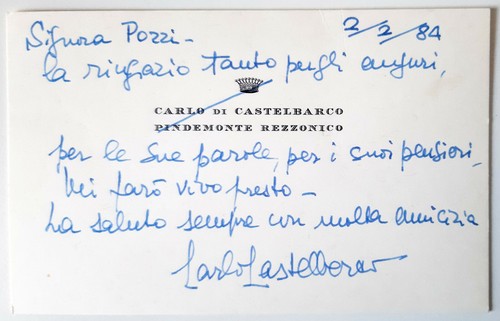 Signora Pozzi - 2/2/84
la ringrazio tanto per gli auguri,
CARLO DI CASTELBARCO
PINDEMONTE REZZONICO
per le sue parole, per i suoi pensieri,
Mi farò vivo presto -
La saluto sempre con molta amicizia
Carlo Castelbarco